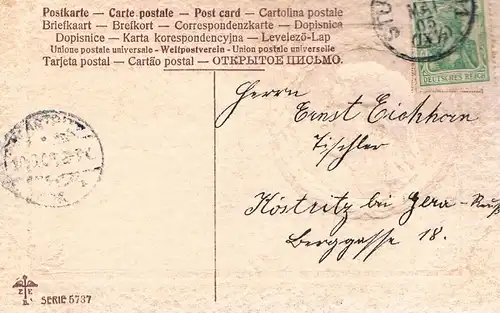 Postkarte — Carte postale — Post card — Cartolina postale
Briefkaart — Brefkort — Correspondenzkarte — Dopisnica
Dopisnice — Karta korespondencyjna — Levelező-Lap
Unione postale universale - Weltpostverein - Union postale universelle
Tarjeta postal — Cartão postal — ОТКРЫТОЕ ПИСЬМО.
MAI
05
DEUTSCHES REICH
Herrn
Ernst Eichhorn
Tischler
Köstritz bei Gera-Reuß
Berggasse 18.
SERIE 5737